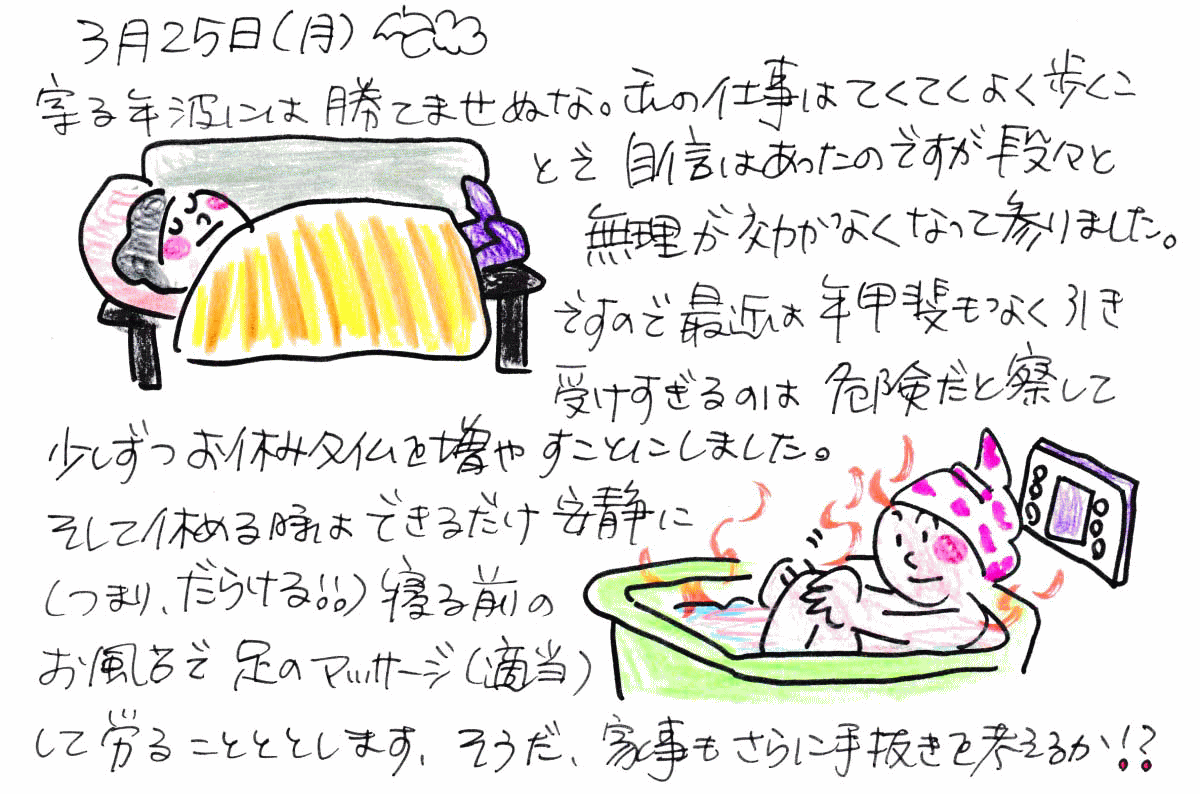 3月25日(月)
寄る年波には勝てませぬな。私の仕事はてくてくよく歩くこ
とで自信はあったのですが段々と
無理が効かなくなって参りました。
ですので最近は年甲斐もなく引き
受けすぎるのは危険だと察して
少しずつお休みタイムを増やすことにしました。
そして休める時はできるだけ安静に
(つまり、だらける!!)寝る前の
お風呂で足のマッサージ(適当)
して労ることとします、そうだ、家事もさらに手抜きを考えるか!?